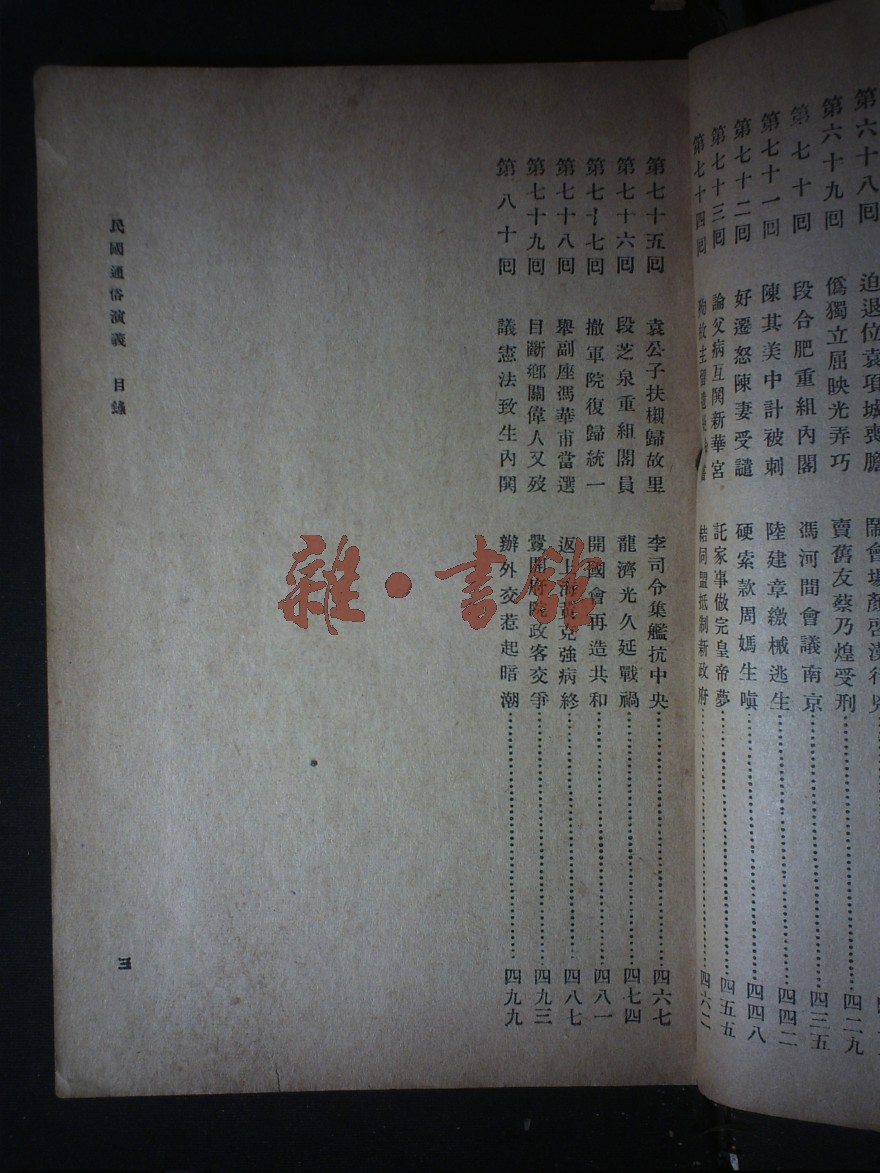 第六十八回 迫退位袁項城喪膽 鬧會場顏啓漢行兇
第六十九回 僞獨立屈映光弄巧 賣舊友蔡乃煌受刑……四二九
第七十回 段合肥重組內閣 馮河間會議南京……四三五
第七十一回 陳其美中計被刺 陸建章繳械逃生……四四二
第七十二回 好遷怒陳妻受譴 硬索款周媽生嗔……四四八
第七十三回 論父病互鬩新華宮 託家事做完皇帝夢……四五五
第七十四回 殉故主留遺 結同盟抵制新政府……四六二
第七十五回 袁公子扶櫬歸故里 李司令集艦抗中央……四六七
第七十六回 段芝泉重組閣員 龍濟光久延戰禍……四七四
第七十七回 撤軍院復歸統一 開國會再造共和……四八一
第七十八回 舉副座馮華甫當選 返上海黃克強病終……四八七
第七十九回 目斷鄉關偉人又歿 釁開府院政客交爭……四九三
第八十回 議憲法致生內鬩 辦外交惹起暗潮……四九九
民國通俗演義 目錄
三
雜·書館